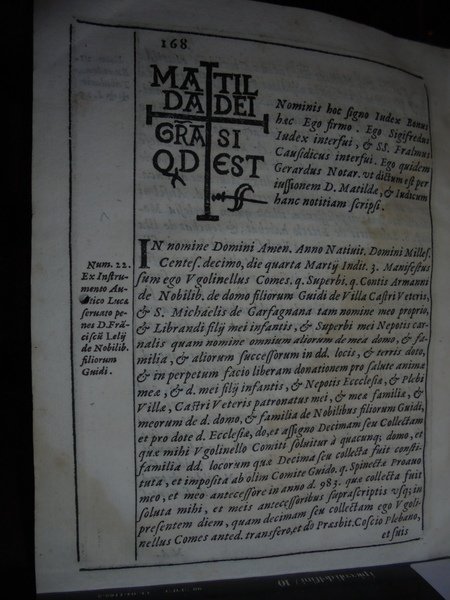 168
MATIL
DA DEI
GRA SI
QD EST
Nominis hoc signo Iudex Bonus
hæc Ego firmo. Ego Sigifredus
Iudex interfui, & SS. Fralmus
Causidicus interfui. Ego quidem
Gerardus Notar. vt dictum est per
iussionem D. Matildæ, & Iudicum
hanc notitiam scripsi.
IN nomine Domini Amen. Anno Natiuit. Domini Milles.
Centes. decimo, die quarta Martij Indit. 3. Manifestus
sum ego Vgolinellus Comes. q. Superbi, q. Contis Armanni
de Nobilib. de domo filiorum Guidi de Villa Castri Veteris,
& S. Michaelis de Garfagnana tam nomine meo proprio,
& Librandi filij mei infantis, & Superbi mei Nepotis car-
nalis quam nomine omnium aliorum de mea domo, & fa-
milia, & aliorum successorum in dd. locis, & terris doto,
& in perpetum facio liberam donationem pro salute animæ
meæ, & d. mei filij infantis, & Nepotis Eccclesiæ, & Plebi
Villæ, Castri Veteris patronatus mei, & meæ familiæ, &
meorum de d. domo, & familia de Nobilibus filiorum Guidi,
et pro dote d. Ecclesiæ, do, et assigno Decimam seu Collectam
quæ mihi Vgolinello Comiti soluitur à quacunq; domo, et
familia dd. locorum quæ Decima seu collecta fuit consti-
tuta, et imposita ab olim Comite Guido. q. Spinectæ Proauo
meo, et meo antecessore in anno d. 983. quæ collecta fuit
soluta mihi, et meis antecessoribus suprascriptis vsq; in
presentem diem, quam decimam seu collectam ego Vgoli-
nellus Comes anted. transfero, et do Præsbit. Coscio Plebano,
et suis
Num. 22.
Ex Instru-
mento Au-
tico Lucæ
seruato pe-
nes D. Frā-
ciscū Lelij
de Nobilib.
filiorum
Guidi.